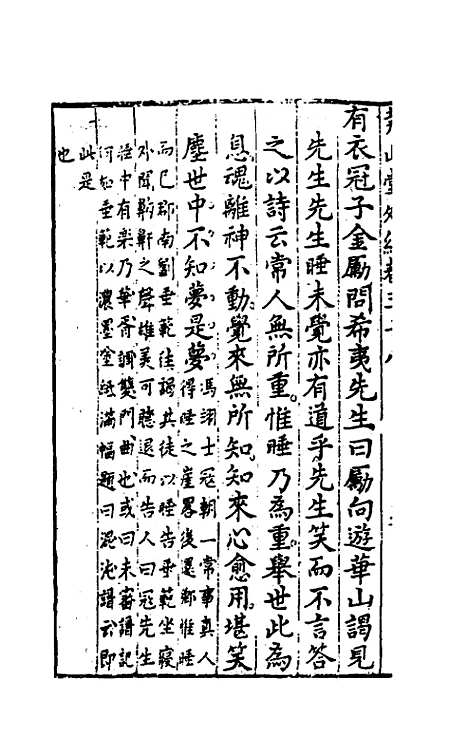 堯山堂外紀卷三十八
有衣冠子金勵問希夷先生曰勵向遊華山謁見
先生先生睡未覺亦有道乎先生笑而不言答
之以詩云常人無所重惟睡乃為重舉世此為
息魂離神不動覺來無所知知來心愈用堪笑
塵世中不知夢是夢
馮翊士寇朝一常事真人
得睡之崖畧後還鄉惟睡
而已郡南劉垂範往謁其徒以睡告垂範坐寢
外聞鼾鼾之聲雄美可聽退而告人曰寇先生
睡中有樂乃華胥調雙門曲也或曰未審譜記
何如垂範以濃墨塗紙滿幅題曰混沌譜云即
此是
也